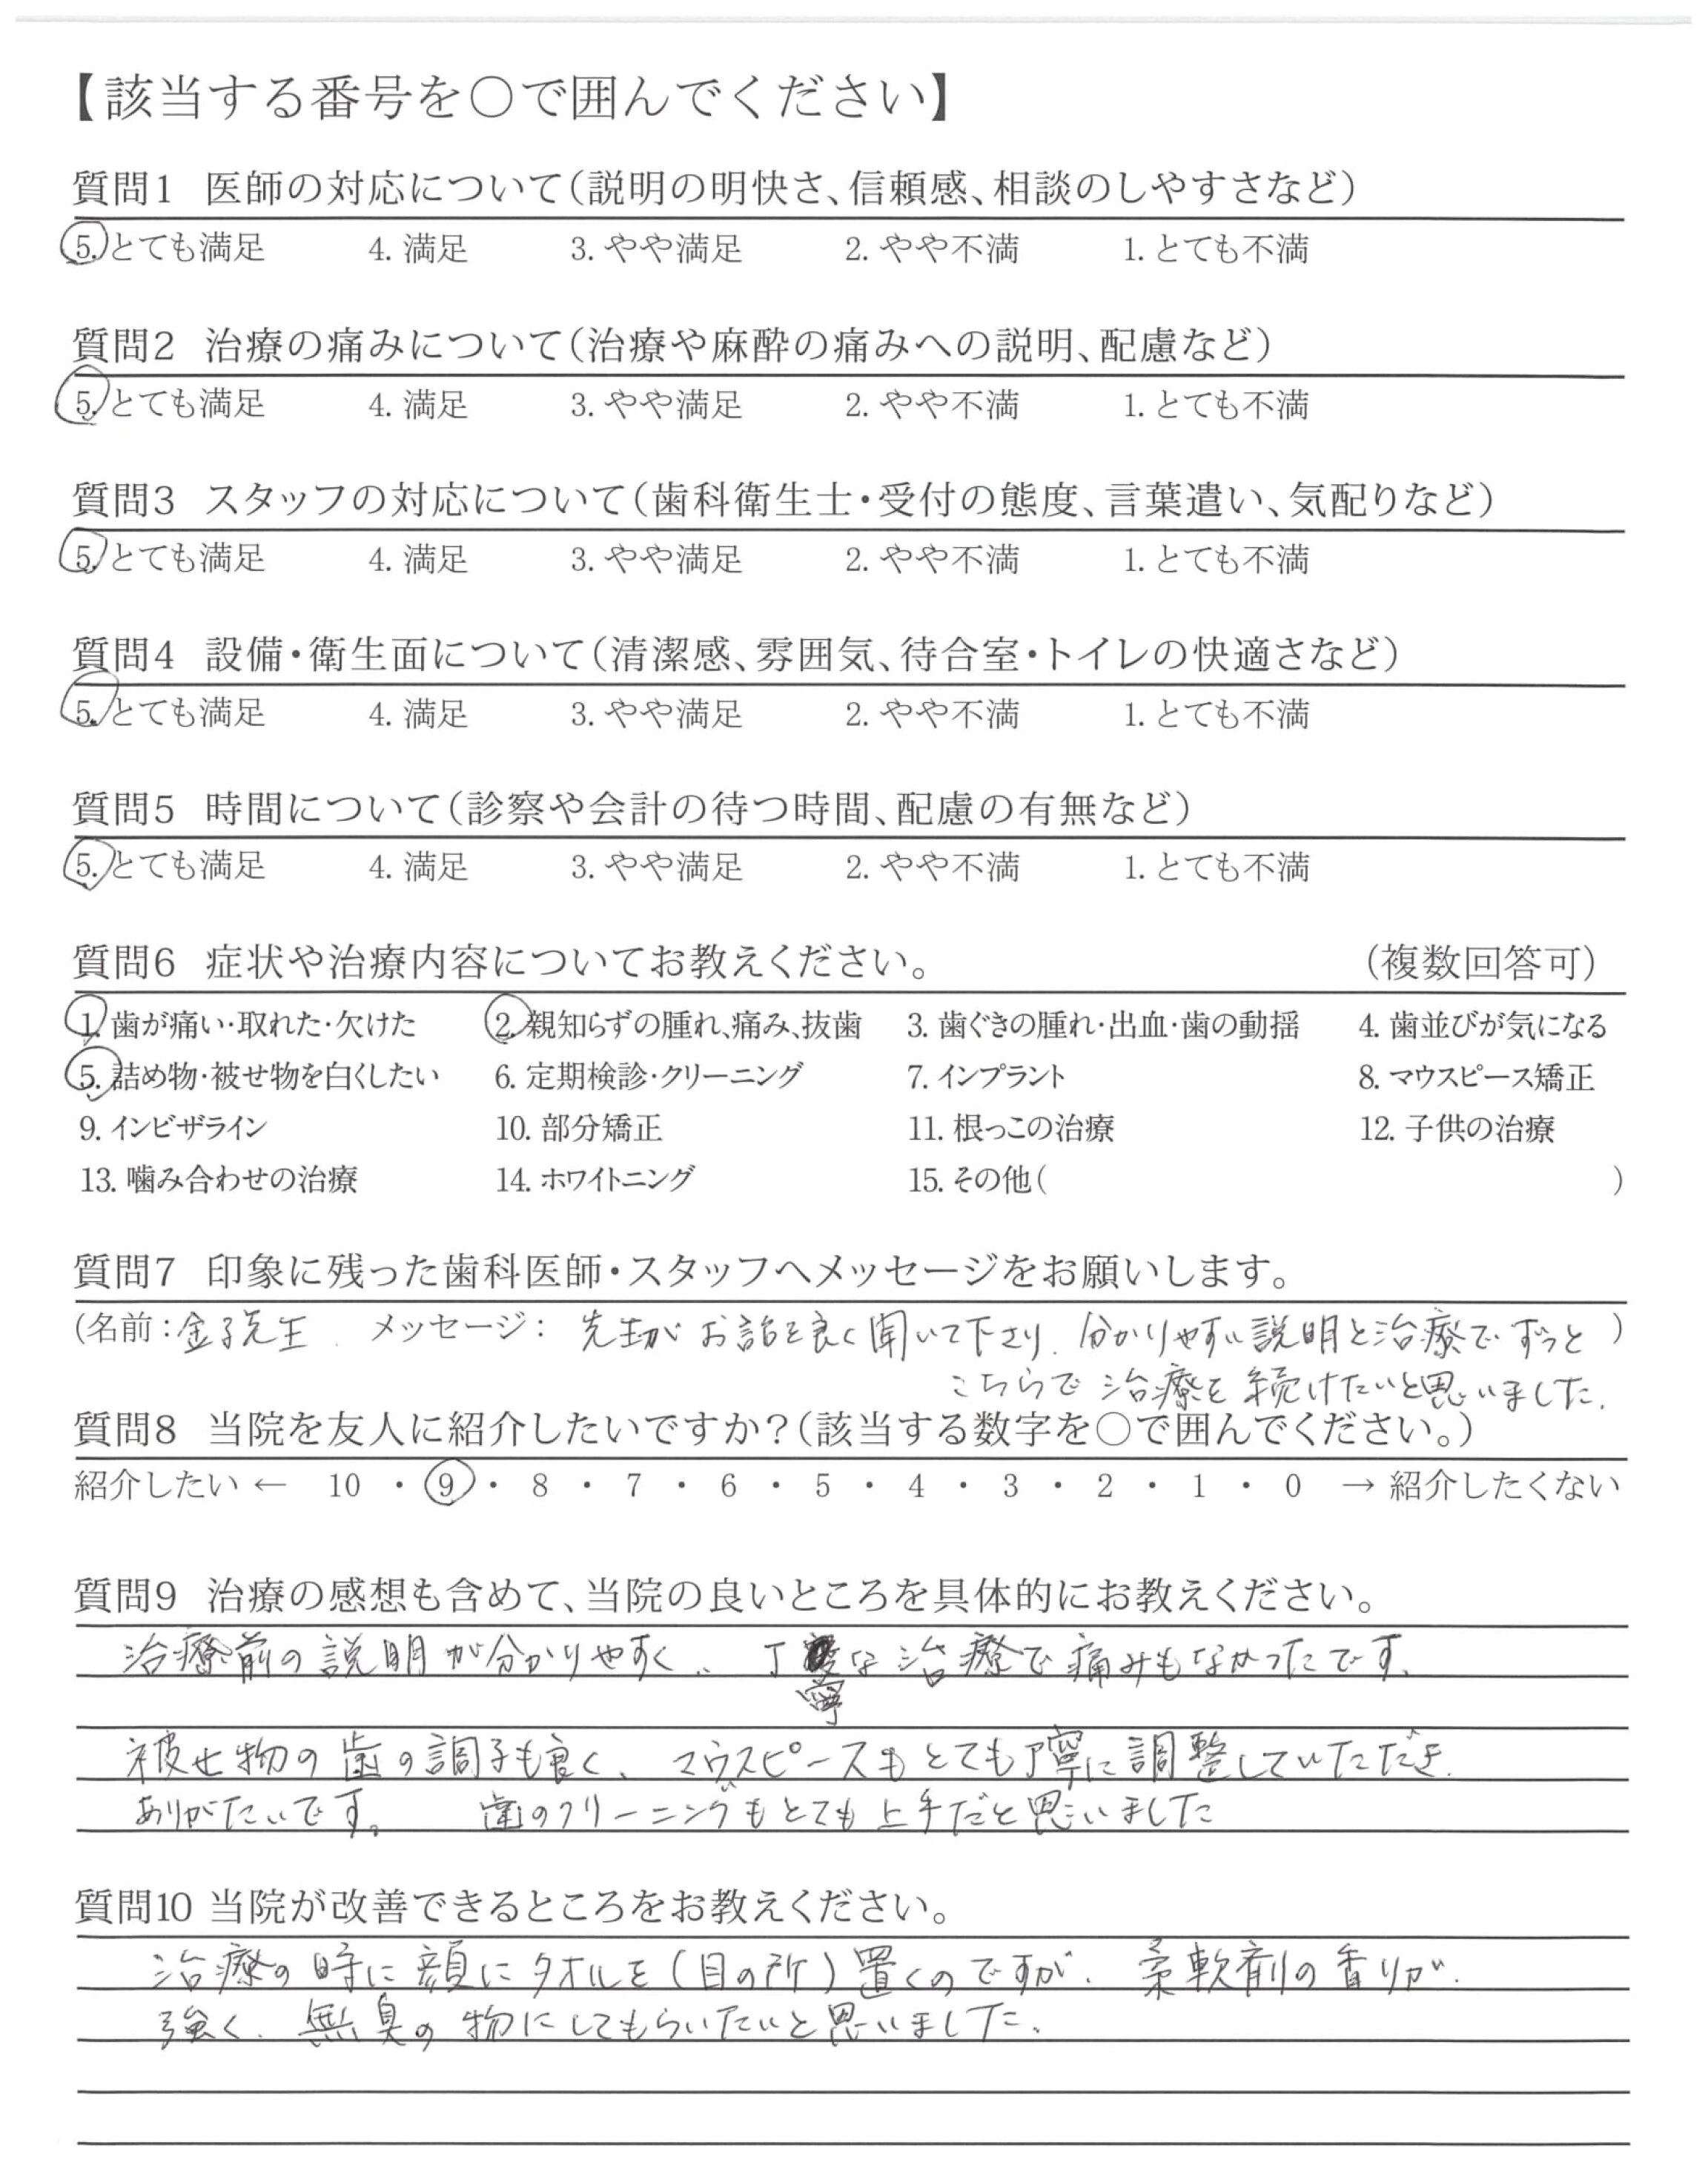 【該当する番号を○で囲んでください】
質問1 医師の対応について(説明の明快さ、信頼感、相談のしやすさなど)
5. とても満足 4. 満足 3. やや満足 2. やや不満 1. とても不満
質問2 治療の痛みについて(治療や麻酔の痛みへの説明、配慮など)
5. とても満足 4. 満足 3. やや満足 2. やや不満 1. とても不満
質問3 スタッフの対応について(歯科衛生士・受付の態度、言葉遣い、気配りなど)
5. とても満足 4. 満足 3. やや満足 2. やや不満 1. とても不満
質問4 設備・衛生面について(清潔感、雰囲気、待合室・トイレの快適さなど)
5. とても満足 4. 満足 3. やや満足 2. やや不満 1. とても不満
質問5 時間について(診察や会計の待つ時間、配慮の有無など)
5. とても満足 4. 満足 3. やや満足 2. やや不満 1. とても不満
質問6 症状や治療内容についてお教えください。 (複数回答可)
1. 歯が痛い・取れた・欠けた 2. 親知らずの腫れ、痛み、抜歯 3. 歯ぐきの腫れ・出血・歯の動揺 4. 歯並びが気になる
5. 詰め物・被せ物を白くしたい 6. 定期検診・クリーニング 7. インプラント 8. マウスピース矯正
9. インビザライン 10. 部分矯正 11. 根っこの治療 12. 子供の治療
13. 噛み合わせの治療 14. ホワイトニング 15. その他( )
質問7 印象に残った歯科医師・スタッフへメッセージをお願いします。
(名前:金子先生 メッセージ: 先生がお話を良く聞いて下さり、分かりやすい説明と治療でずっと )
こちらで治療を続けたいと思いました。
質問8 当院を友人に紹介したいですか?(該当する数字を○で囲んでください。)
紹介したい ← 10 ・ 9 ・ 8 ・ 7 ・ 6 ・ 5 ・ 4 ・ 3 ・ 2 ・ 1 ・ 0 → 紹介したくない
質問9 治療の感想も含めて、当院の良いところを具体的にお教えください。
治療前の説明が分かりやすく、丁寧な治療で痛みもなかったです。
被せ物の歯の調子も良く、マウスピースもとても丁寧に調整していただき、
ありがたいです。 歯のクリーニングもとても上手だと思いました
質問10 当院が改善できるところをお教えください。
治療の時に顔にタオルを(目の所)置くのですが、柔軟剤の香りが
強く、無臭の物にしてもらいたいと思いました。